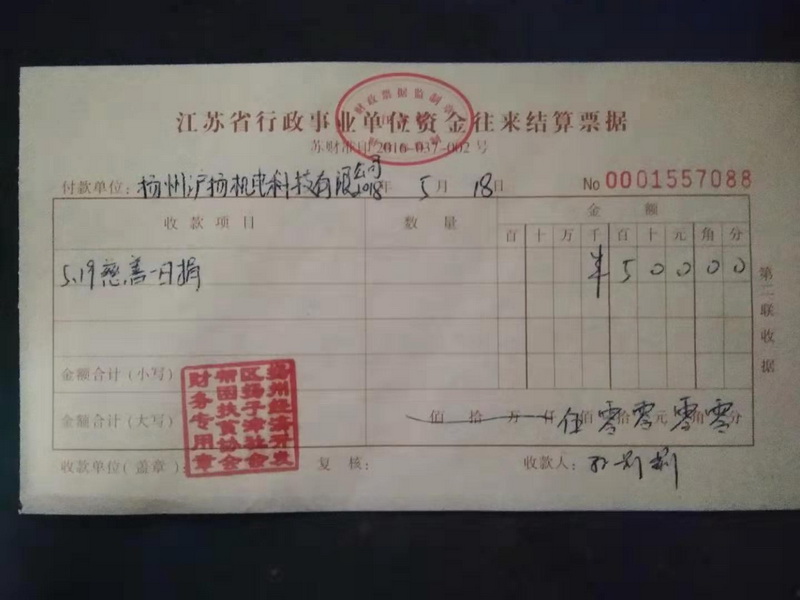 江苏省行政事业单位资金往来结算票据
苏财准印2016-037-002号
付款单位：扬州沪扬机电科技有限公司 2018年 5月 18日 No 0001557088
收款项目 数量 金额
百 十 万 千 百 十 元 角 分
5.19慈善一日捐 ¥ 5 0 0 0 0
金额合计（小写）
金额合计（大写） 佰 拾 万 仟 伍佰零拾零元零角零分
收款单位（盖章）： 复核： 收款人：
第二联收据
财政票据监制章
扬州经济开发
区扬子津社会
帮困扶贫协会
财务专用章